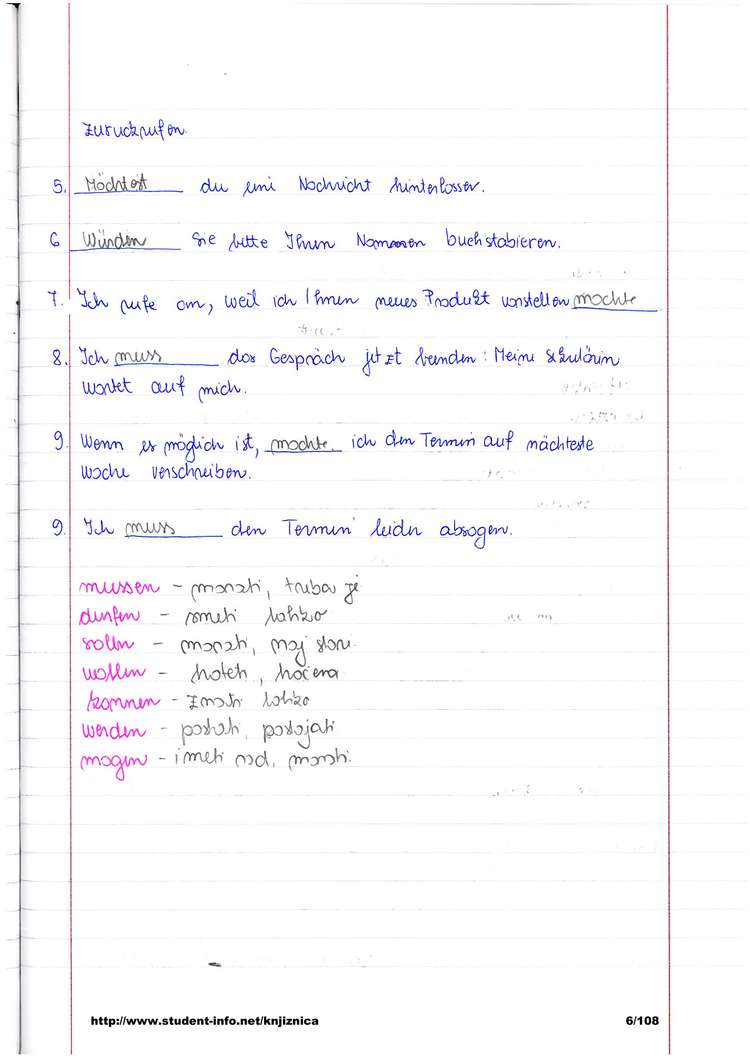 zuruckrufen.
5. Möchtest du eine Nachricht hinterlassen.
6 Würden Sie bitte Ihren Namen buchstabieren.
7. Ich rufe an, weil ich Ihnen neues Produkt vorstellen mochte
8. Ich muss das Gespräch jetzt beenden: Meine
wartet auf mich.
9. Wenn es möglich ist, mochte ich den Termin auf nächteste
Woche verschreiben.
9. Ich muss den Termin leider absagen.
mussen - morati, treba je
durfen - smeti lahko
sollen - morati, naj stori
wollen - hoteti, hočem
konnen - znati lahko
werden - postati, postajati
mogen - imeti rad, marati.
http://www.student-info.net/knjiznica 6/108